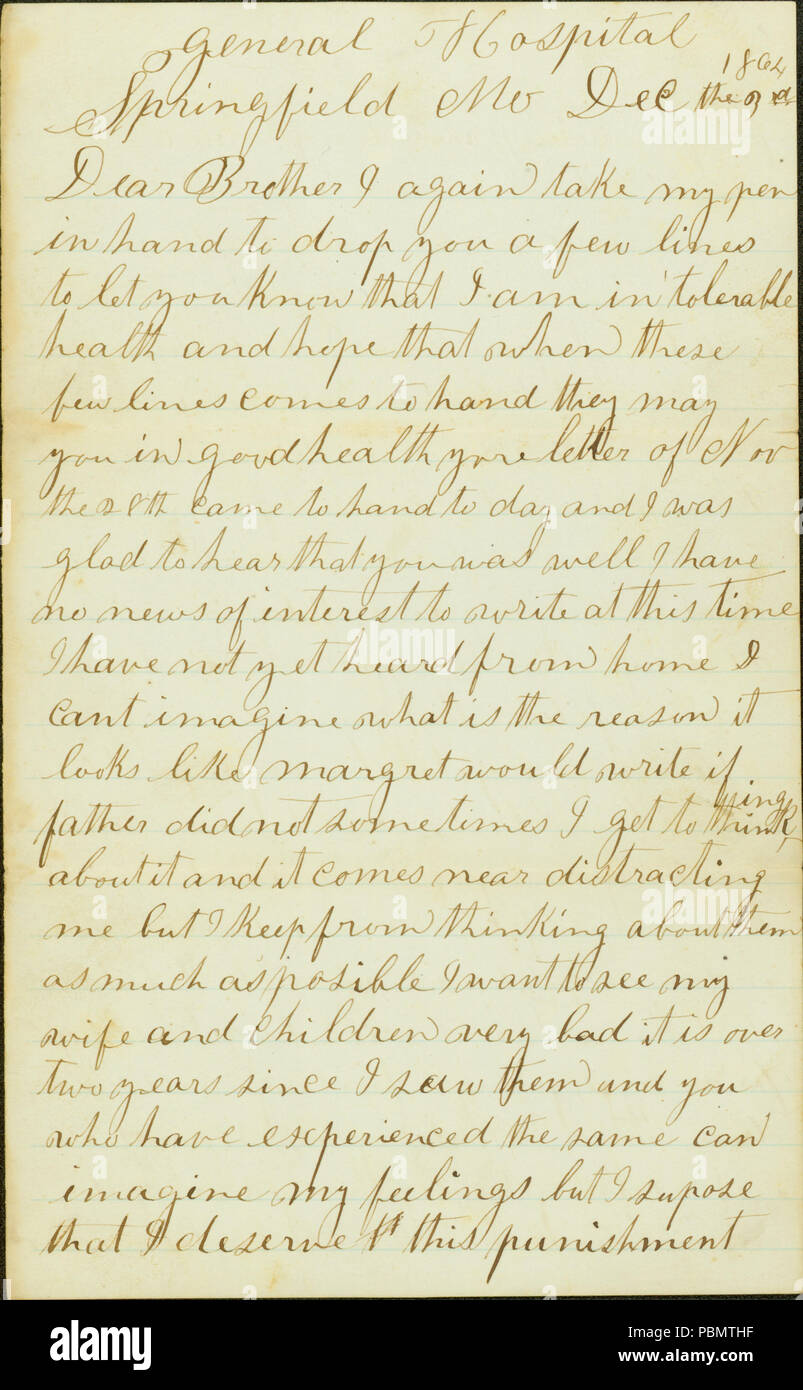 General Hospital
Springfield Mo Dec the 3d 1864
Dear Brother I again take my pen
in hand to drop you a few lines
to let you know that I am in tolerable
health and hope that when these
few lines comes to hand they may
you in good health youre letter of Nov
the 28th came to hand to day and I was
glad to hear that you was well I have
no news of interest to write at this time
I have not yet heard from home I
cant imagine what is the reason it
looks like margret would write if
father did not sometimes I get to thinking
about it and it comes near distracting
me but I keep from thinking about them
as much as posible I want to see my
wife and children very bad it is over
two years since I saw them and you
who have experienced the same can
imagine my feelings but I supose
that I deserve this punishment
alamy
alamy
alamy
alamy
Image ID: PBMTHF
www.alamy.com